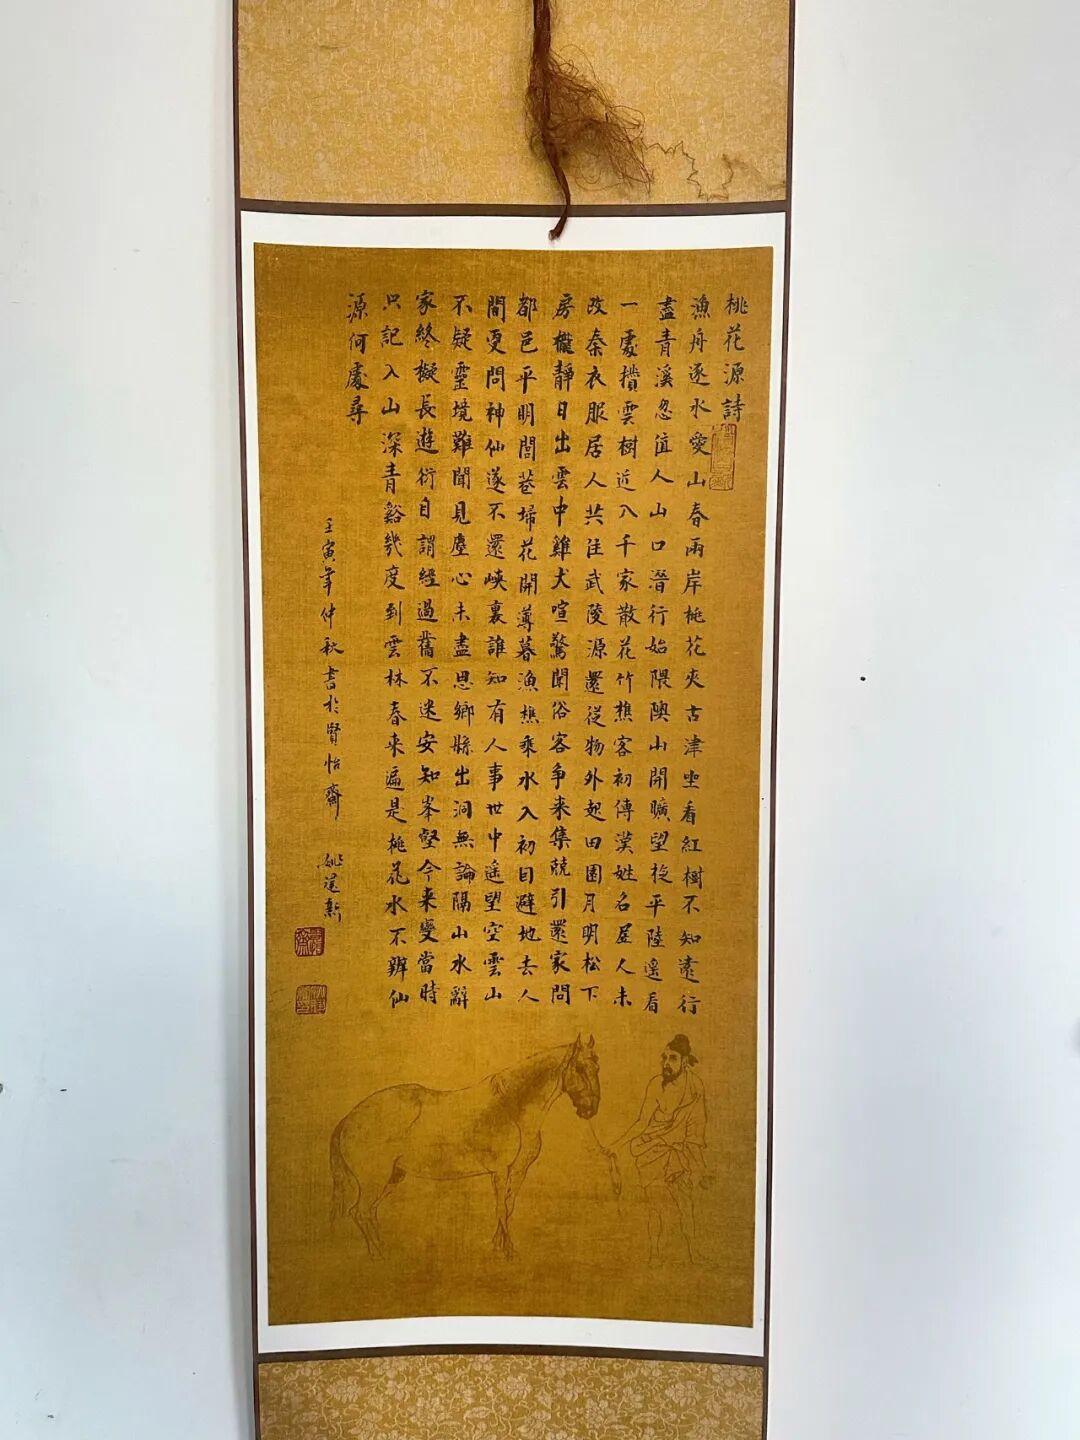 桃花源詩
漁舟逐水愛山春兩岸桃花夾古津坐看紅樹不知遠行
盡青溪忽值人山口潛行始隈隩山開曠望旋平陸遙看
一處攢雲樹近入千家散花竹樵客初傳漢姓名居人未
改秦衣服居人共住武陵源還從物外起田園月明松下
房櫳靜日出雲中雞犬喧驚聞俗客爭来集競引還家問
都邑平明閭巷埽花開薄暮漁樵乘水入初因避地去人
間更問神仙遂不還峽裏誰知有人事世中遙望空雲山
不疑靈境難聞見塵心未盡思鄉縣出洞無論隔山水辭
家終擬長遊衍自謂經過舊不迷安知峯壑今来變當時
只記入山深青谿幾度到雲林春来遍是桃花水不辨仙
源何處尋
壬寅年仲秋書於賢怡齋 姚